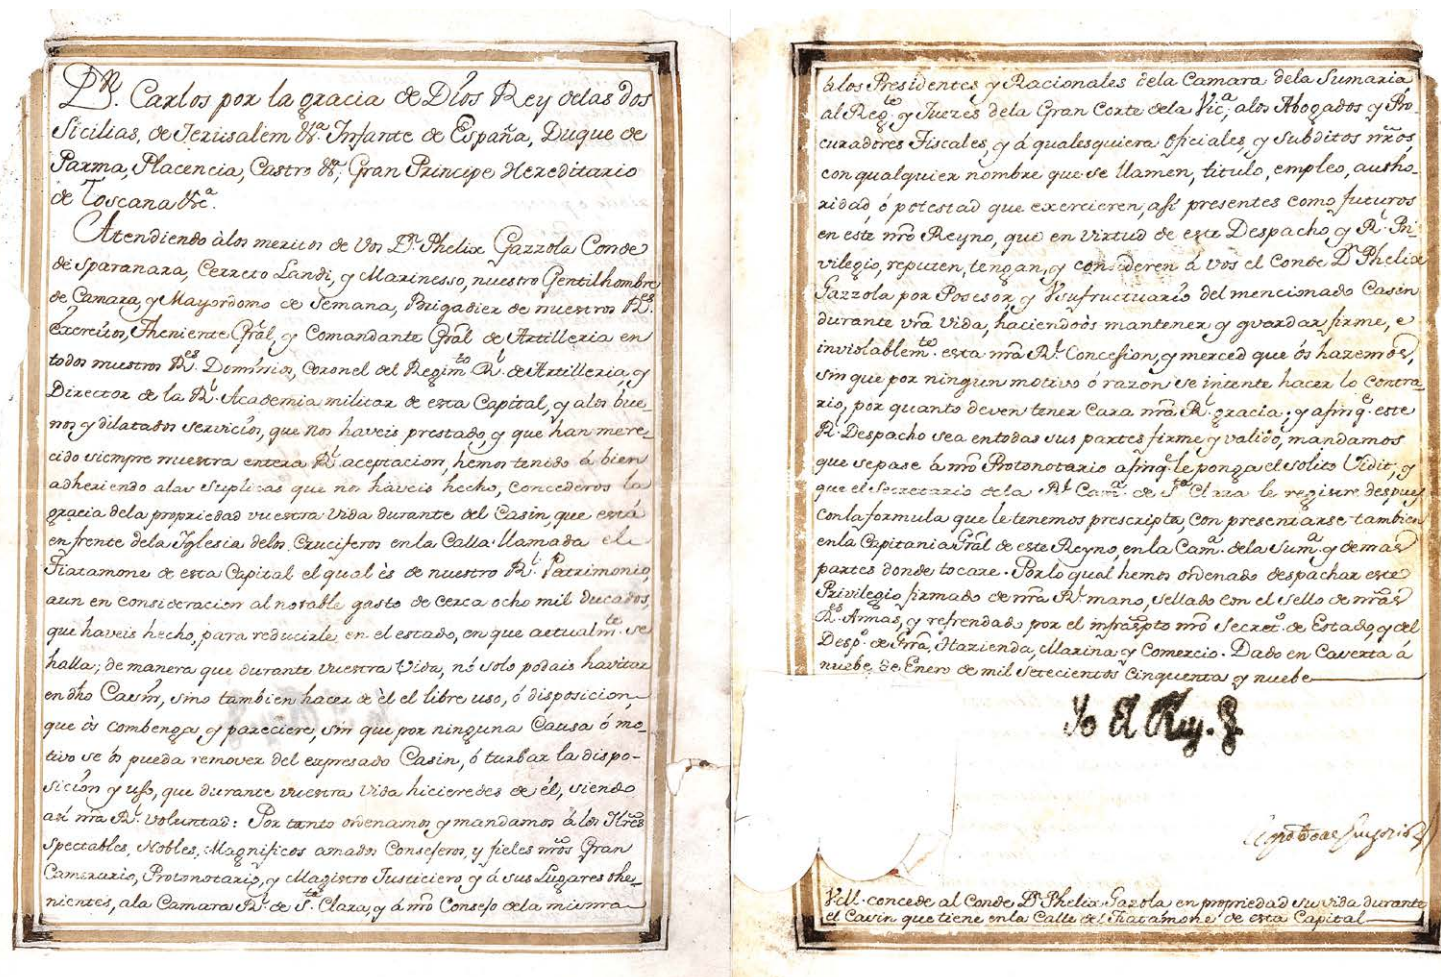 Dn. Carlos por la gracia de Dios Rey de las dos
Sicilias, de Jerusalem &a. Infante de España, Duque de
Parma, Placencia, Castro &a; Gran Principe Hereditario
de Toscana &ca.
Atendiendo à los meritos de Vos Dn. Phelix Gazzola Conde
de Sparanara, Cerreto Landi, y Marinesso, nuestro Gentilhombre
de Camara, y Mayordomo de Semana, Brigadier de nuestros Rs.
exercitos, Theniente Gral, y Comandante Gral de Artilleria en
todos nuestros Res. Dominios, Coronel del Regimto. Rl. de Artilleria, y
Director de la Rl. Academia militar de esta Capital, y alos bue-
nos y dilatados servicios, que nos haveis prestado, y que han mere-
cido siempre nuestra entera Rl. aceptacion, hemos tenido á bien
adheriendo alas suplicas que nos haveis hecho, concederos la
gracia dela propriedad vuestra Vida durante del Casin que está
en frente dela Iglesia delos Cruciferos en la Calla llamada el
Fiatamone de esta Capital el qual ès de nuestro Rl. Patrimonio,
aun en consideracion al notable gasto de cerca ocho mil ducados,
que haveis hecho, para reducirle en el estado, en que actualmte. se
halla; de manera que durante vuestra Vida, nó solo podais havitar
en dho Casin, sino tambien hacer de èl el libre uso, ó disposicion,
que òs combenga y pareciere, sin que por ninguna Causa ó mo-
tivo se òs pueda remover del expresado Casin, ó turbar la dispo-
sicion y uso, que durante vuestra Vida hicieredes de él, siendo
asi nra Rl. voluntad: Por tanto ordenamos y mandamos á los Ittres
spectables, Nobles, Magnificos amados Consejeros, y fieles nros Gran
Camerario, Protonotario, y Magistro Justiciero y á sus Lugares the-
nientes, ala Camara Rl. de Sta. Clara, y á nro Consejo dela misma
à los Presidentes y Racionales dela Camara dela Sumaria
al Regte. y Jueces dela Gran Corte dela Vica; alos Abogados y Pro-
curadores Fiscales, y á qualesquiera Oficiales, y Subditos nros,
con qualquier nombre que se llamen, titulo, empleo, autho-
ridad, ó potestad que exercieren, asi presentes como futuros
en este nro Reyno, que en virtud de este Despacho y Rl. Pri-
vilegio, reputen, tengan, y consideren á vos el Conde Dn Phelix
Gazzola por Posesor, y Vsufructuario del mencionado Casin
durante vra Vida, haciendoòs mantener y guardar firme, e
inviolablemte. esta nra Rl. Concesion, y merced que òs hazemos,
sin que por ningun motivo ó razon se intente hacer lo contra-
rio, por quanto deven tener cara nra Rl. gracia; y afinqe. este
Rl. Despacho sea entodas sus partes firme y valido, mandamos
que se pase á nro Protonotario afinqe. le ponga el solito Vidit; y
que el Secretario de la Rl. Cama. de Sta Clara le registre despues
con la formula que le tenemos prescripta, con presentarse tambien
en la Capitania Gral de este Reyno, en la Cama. dela Suma. y demas
partes donde tocare. Por lo qual hemos ordenado despachar este
Privilegio firmado de nra Rl. mano, sellado con el sello de nras
Rs. Armas, y refrendado por el infraspto nro Secreto. de Estado, y del
Despo. de Grra, Hazienda, Marina y Comercio. Dado en Caserta á
nuebe de Enero de mil setecientos cinquenta y nuebe
Yo El Rey.
VM. concede al Conde Dn Phelix Gazola en propriedad su vida durante
el Casin que tiene en la Calle del Fiatamone de esta Capital